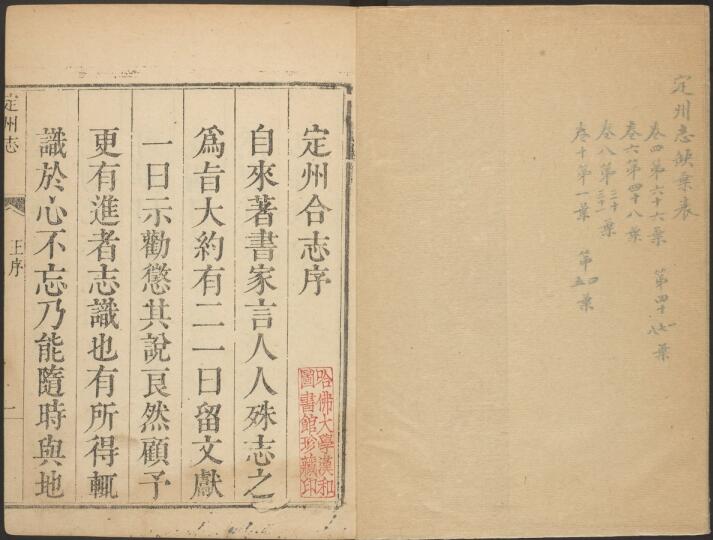 定州志缺葉表
卷四第六十六葉 第四十七八葉
卷六第四十八葉
卷八第葉
卷十第一葉 第四五葉
定州合志序
哈佛大學漢和
圖書館珍藏印
自來著書家言人人殊志之
爲旨大約有二一曰留文獻
一曰示勸懲其說良然顧予
更有進者志識也有所得輒
識於心不忘乃能隨時與地
定州志 王序 一